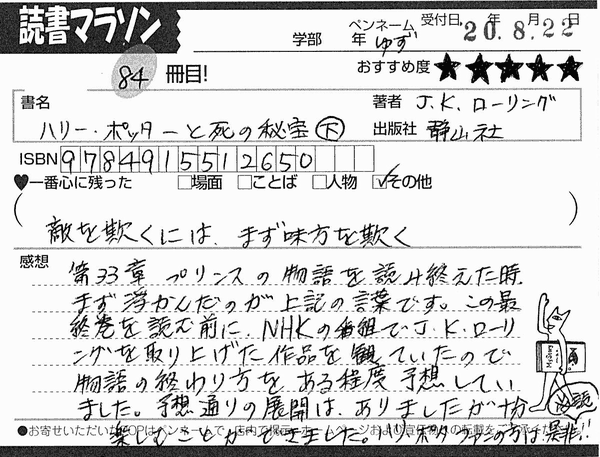 読書マラソン
学部 年 ペンネーム ゆず 受付日 20年8月22日
84冊目! おすすめ度 ★★★★★
書名 著者 J.K.ローリング
ハリー・ポッターと死の秘宝 下 出版社 静山社
ISBN 9784915512650
♥一番心に残った □場面 □ことば □人物 ☑その他
(敵を欺くには、まず味方を欺く)
感想 第33章 プリンスの物語を読み終えた時
まず浮かんだのが上記の言葉です。この最
終巻を読む前に、NHKの番組でJ.K.ローリ
ングを取り上げた作品を観ていたので
物語の終わり方をある程度予想してい
ました。予想通りの展開は、ありましたが十分
●お寄せいただいたPOPはペンネームで、店内で掲示・ホームページおよび宣伝物への転載をご了承ください
楽しむことができました。ハリ・ポタファンの方は是非!!
必読